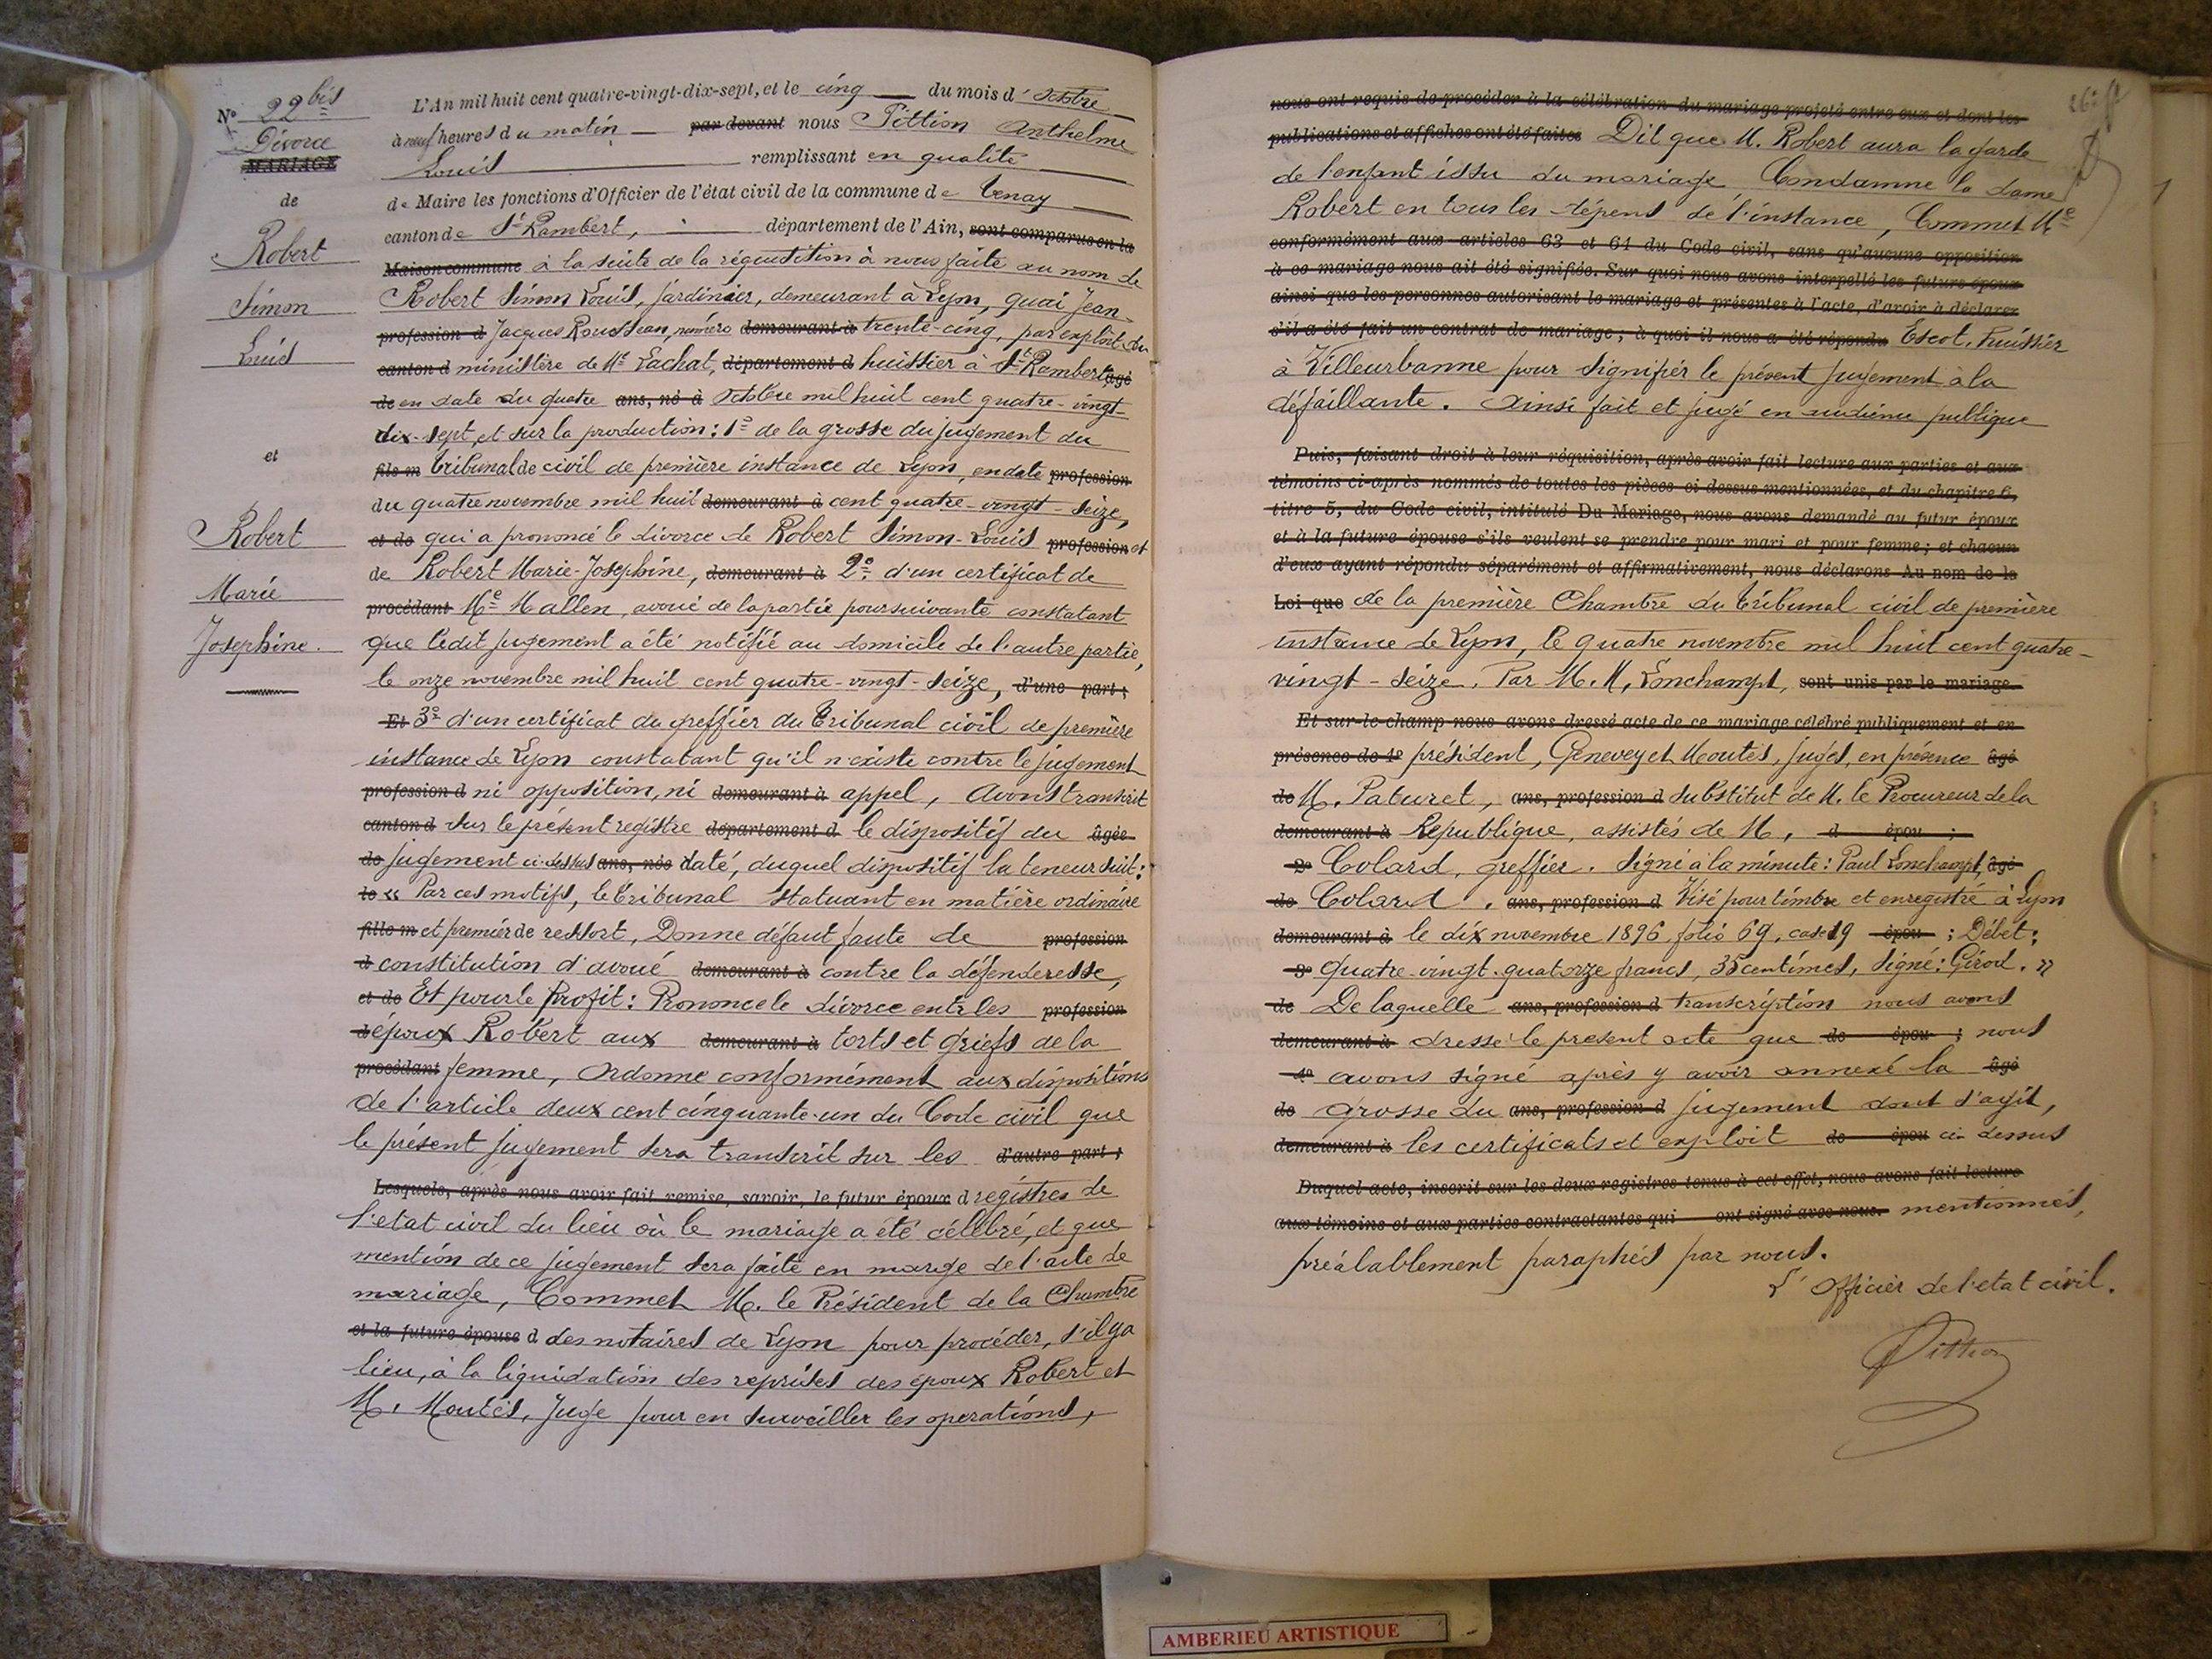 No 22 bis
Divorce
MARIAGE
de
Robert
Simon
Louis
et
Robert
Marie
Josephine.
L'An mil huit cent quatre-vingt-dix-sept, et le cinq du mois d'octobre
à neuf heures du matin par devant nous Pittion Anthelme
Louis remplissant en qualité
de Maire les fonctions d'Officier de l'état civil de la commune de Tenay
canton de St Rambert, département de l'Ain, sont comparus en la
Maison commune à la suite de la réquisition à nous faite au nom de
Robert Simon Louis, jardinier, demeurant à Lyon, quai Jean-
profession d Jacques Rousseau, numéro demeurant à trente-cinq, par exploit du
canton d ministère de Me Lachat, département d huissier à St Rambert agé
de en date du quatre ans, né à octobre mil huit cent quatre-vingt-
dix-sept, et sur la production: 1o de la grosse du jugement du
fils m tribunal de civil de première instance de Lyon, en date profession
du quatre novembre mil huit demeurant à cent quatre-vingt-seize,
et de qui a prononcé le divorce de Robert Simon-Louis profession et
de Robert Marie-Josephine, demeurant à 2o d'un certificat de
procédant Me Mallen, avoué de la partie poursuivante constatant
que ledit jugement a été notifié au domicile de l'autre partie,
le onze novembre mil huit cent quatre-vingt-seize, d'une part;
Et 3o d'un certificat du greffier du Tribunal civil de première
instance de Lyon constatant qu'il n'existe contre le jugement
profession d ni opposition, ni demeurant à appel, Avons transcrit
canton d sur le présent registre département d le dispositif du âgée
de jugement ci-dessus ans, née daté, duquel dispositif la teneur suit:
le « Par ces motifs, le tribunal statuant en matière ordinaire
fille m et premier de ressort, Donne défaut faute de profession
d constitution d'avoué demeurant à contre la défenderesse,
et de Et pour le Profit: Prononce le divorce entre les profession
d époux Robert aux demeurant à torts et griefs de la
procédant femme, ordonne conformément aux dispositions
de l'article deux cent cinquante-un du Code civil que
le présent jugement sera transcrit sur les d'autre part;
Lesquels, après nous avoir fait remise, savoir, le futur époux d registres de
l'etat civil du lieu où le mariage a été célébré, et que
mention de ce jugement sera faite en marge de l'acte de
mariage, Commet M. le Président de la Chambre
et la future épouse d des notaires de Lyon pour procéder, s'il y a
lieu, à la liquidation des reprises des époux Robert et
M. Moutès, Juge pour en surveiller les operations,
26e ft
nous ont requis de procéder à la célébration du mariage projeté entre eux et dont les
publications et affiches ont été faites Dit que M. Robert aura la garde
de l'enfant issu du mariage, Condamne la dame
Robert en tous les dépens de l'instance, Commet Me
conformément aux articles 63 et 64 du Code civil, sans qu'aucune opposition
à ce mariage nous ait été signifiée. Sur quoi nous avons interpellé les futurs époux
ainsi que les personnes autorisant le mariage et présentes à l'acte, d'avoir à déclarer
s'il a été fait un contrat de mariage; à quoi il nous a été répondu Escot, huissier
à Villeurbanne pour signifier le présent jugement à la
défaillante. Ainsi fait et jugé en audience publique
Puis, faisant droit à leur réquisition, après avoir fait lecture aux parties et aux
témoins ci-après nommés de toutes les pièces ci dessus mentionnées, et du chapitre 6,
titre 5, du Code civil, intitulé Du Mariage, nous avons demandé au futur époux
et à la future épouse s'ils veulent se prendre pour mari et pour femme; et chacun
d'eux ayant répondu séparément et affirmativement, nous déclarons Au nom de la
Loi que de la première Chambre du tribunal civil de première
instance de Lyon, le quatre novembre mil huit cent quatre-
vingt-seize. Par M. M. Lonchampt, sont unis par le mariage.
Et sur-le-champ nous avons dressé acte de ce mariage célébré publiquement et en
présence de 1o président, Genevey et Moutès, juges, en présence âgé
de M. Paturet, ans, profession d substitut de M. le Procureur de la
demeurant à République, assistés de M. d épou ;
2o Colard, greffier. Signé à la minute: Paul Lonchampt, âgé
de Colard. ans, profession d Visé pour timbre et enregistré à Lyon
demeurant à le dix novembre 1896, folio 69, case 19 épou ; Débet:
3o quatre-vingt-quatorze francs, 35 centimes, Signé: Girod. »
de De laquelle ans, profession d transcription nous avons
demeurant à dressé le present acte que de épou ; nous
4o avons signé après y avoir annexé la âgé
de grosse du ans, profession d jugement dont s'agit,
demeurant à les certificats et exploit de épou ci-dessus
Duquel acte, inscrit sur les deux registres tenus à cet effet, nous avons fait lecture
aux témoins et aux parties contractantes qui ont signé avec nous. mentionnés,
préalablement paraphés par nous.
L'officier de l'etat civil.
Pittion
AMBERIEU ARTISTIQUE